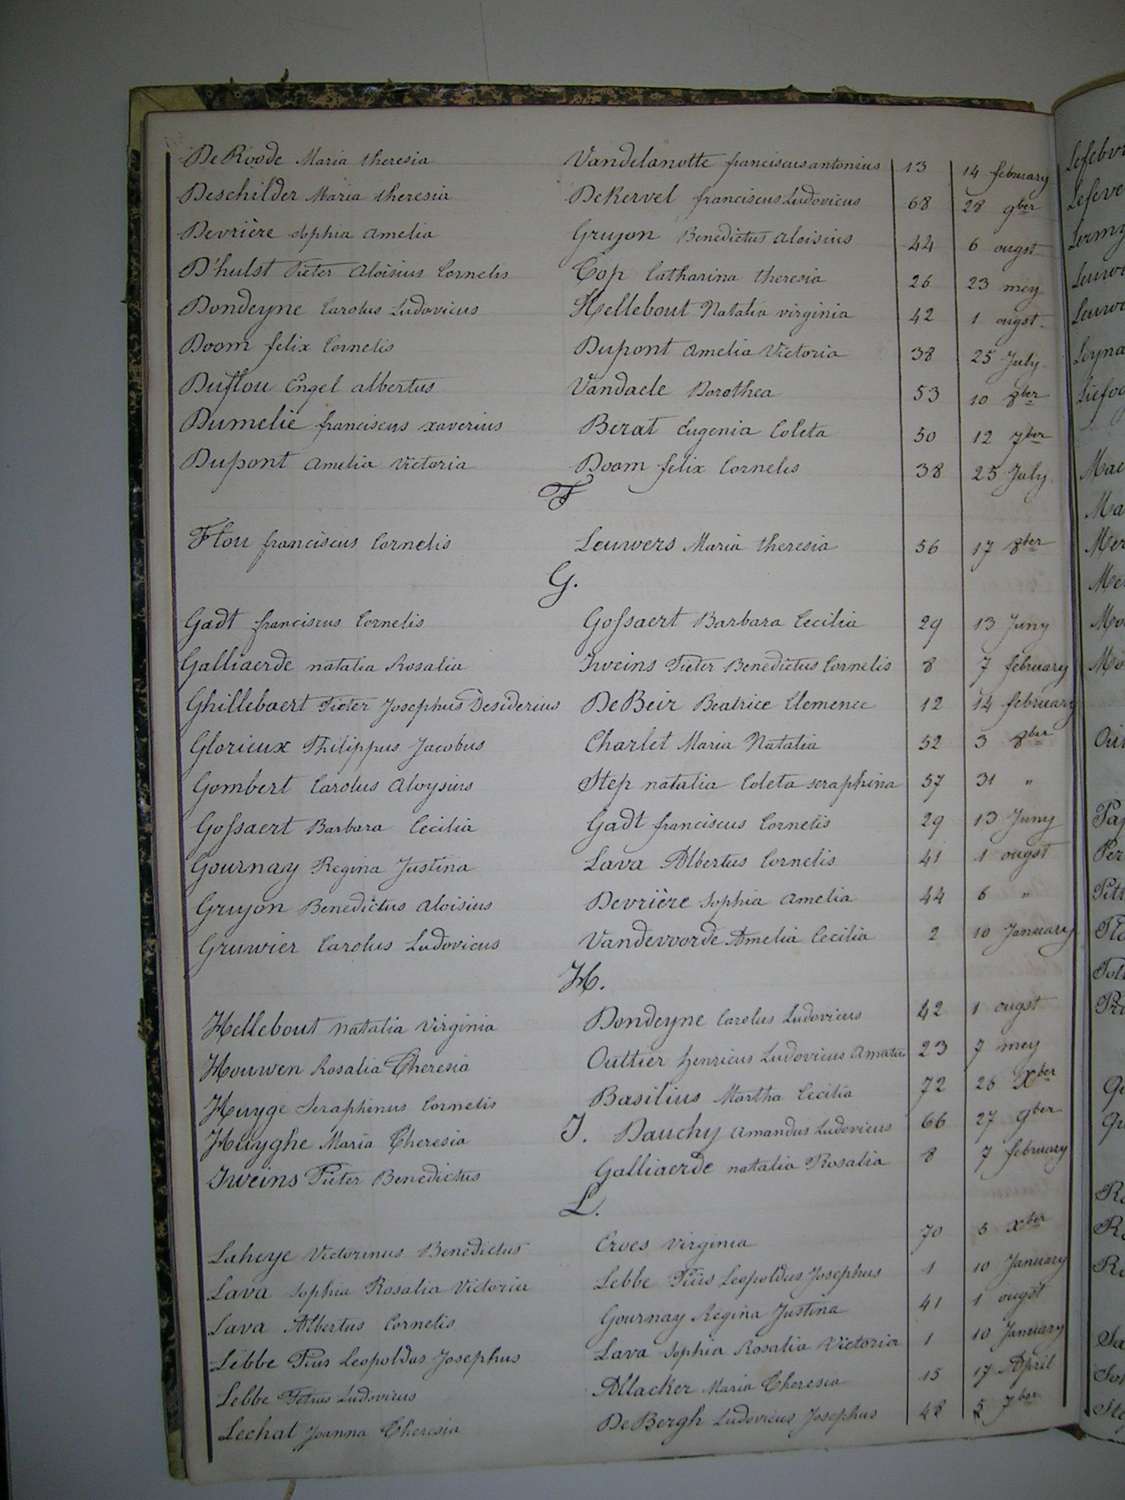 De Roode Maria theresia Vandelanotte franciscus antonius 13 14 february
Deschilder Maria theresia DeKervel franciscus Ludovicus 68 28 9ber
Devrière sophia amelia Gruyon Benedictus aloisius 44 6 ougst
D'hulst Pieter Aloisius Cornelis Top Catharina theresia 26 23 mey
Dondeyne Carolus Ludovicus Hellebout Natalia virginia 42 1 ougst
Doom felix Cornelis Dupont amelia Victoria 38 25 July
Duflou Engel albertus Vandaele Dorothea 53 10 8ber
Dumelie franciscus xaverius Berat Eugenia Coleta 50 12 7ber
Dupont amelia Victoria Doom felix Cornelis 38 25 July
F
Flou franciscus Cornelis Leuwers Maria theresia 56 17 8ber
G.
Gadt franciscus Cornelis Gossaert Barbara Cecilia 29 13 Juny
Galliaerde natalia Rosalia Iweins Pieter Benedictus Cornelis 8 7 february
Ghillebaert Pieter Josephus Desiderius DeBeir Beatrice Clemence 12 14 february
Glorieux Philippus Jacobus Charlet Maria Natalia 52 3 8ber
Gombert Carolus aloysius Step natalia Coleta seraphina 57 31 "
Gossaert Barbara Cecilia Gadt franciscus Cornelis 29 13 Juny
Gournay Regina Justina Lava Albertus Cornelis 41 1 ougst
Gruyon Benedictus aloisius Devrière sophia amelia 44 6 "
Gruwier Carolus Ludovicus Vandevoorde Amelia Cecilia 2 10 January
H.
Hellebout natalia virginia Dondeyne Carolus Ludovicus 42 1 ougst
Houwen Rosalia Theresia Outtier henricus Ludovicus amatu 23 7 mey
Huyge Seraphinus Cornelis Basilius Martha Cecilia 72 26 Xber
Huyghe Maria Theresia Dauchy amandus Ludovicus 66 27 9ber
I.
Iweins Pieter Benedictus Galliaerde natalia Rosalia 8 7 february
L.
Laheye Victorinus Benedictus Croes virginia 70 5 xber
Lava sophia Rosalia Victoria Lebbe Piüs Leopoldus Josephus 1 10 January
Lava Albertus Cornelis Gournay Regina Justina 41 1 ougst
Lebbe Pius Leopoldus Josephus Lava sophia Rosalia Victoria 1 10 January
Lebbe Petrus Ludovicus Allacker Maria Theresia 15 17 April
Lechat Joanna Theresia DeBergh Ludovicus Josephus 48 5 7ber